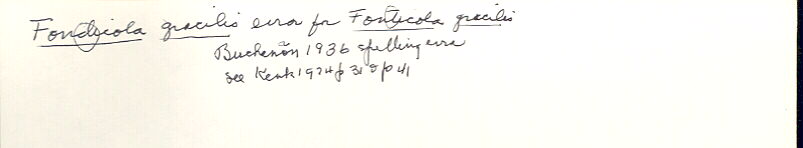 Fondicola gracilis error for Fonticola gracilis
Buchanan 1936 spelling error
see Kenk 1974 p 31 & p 41